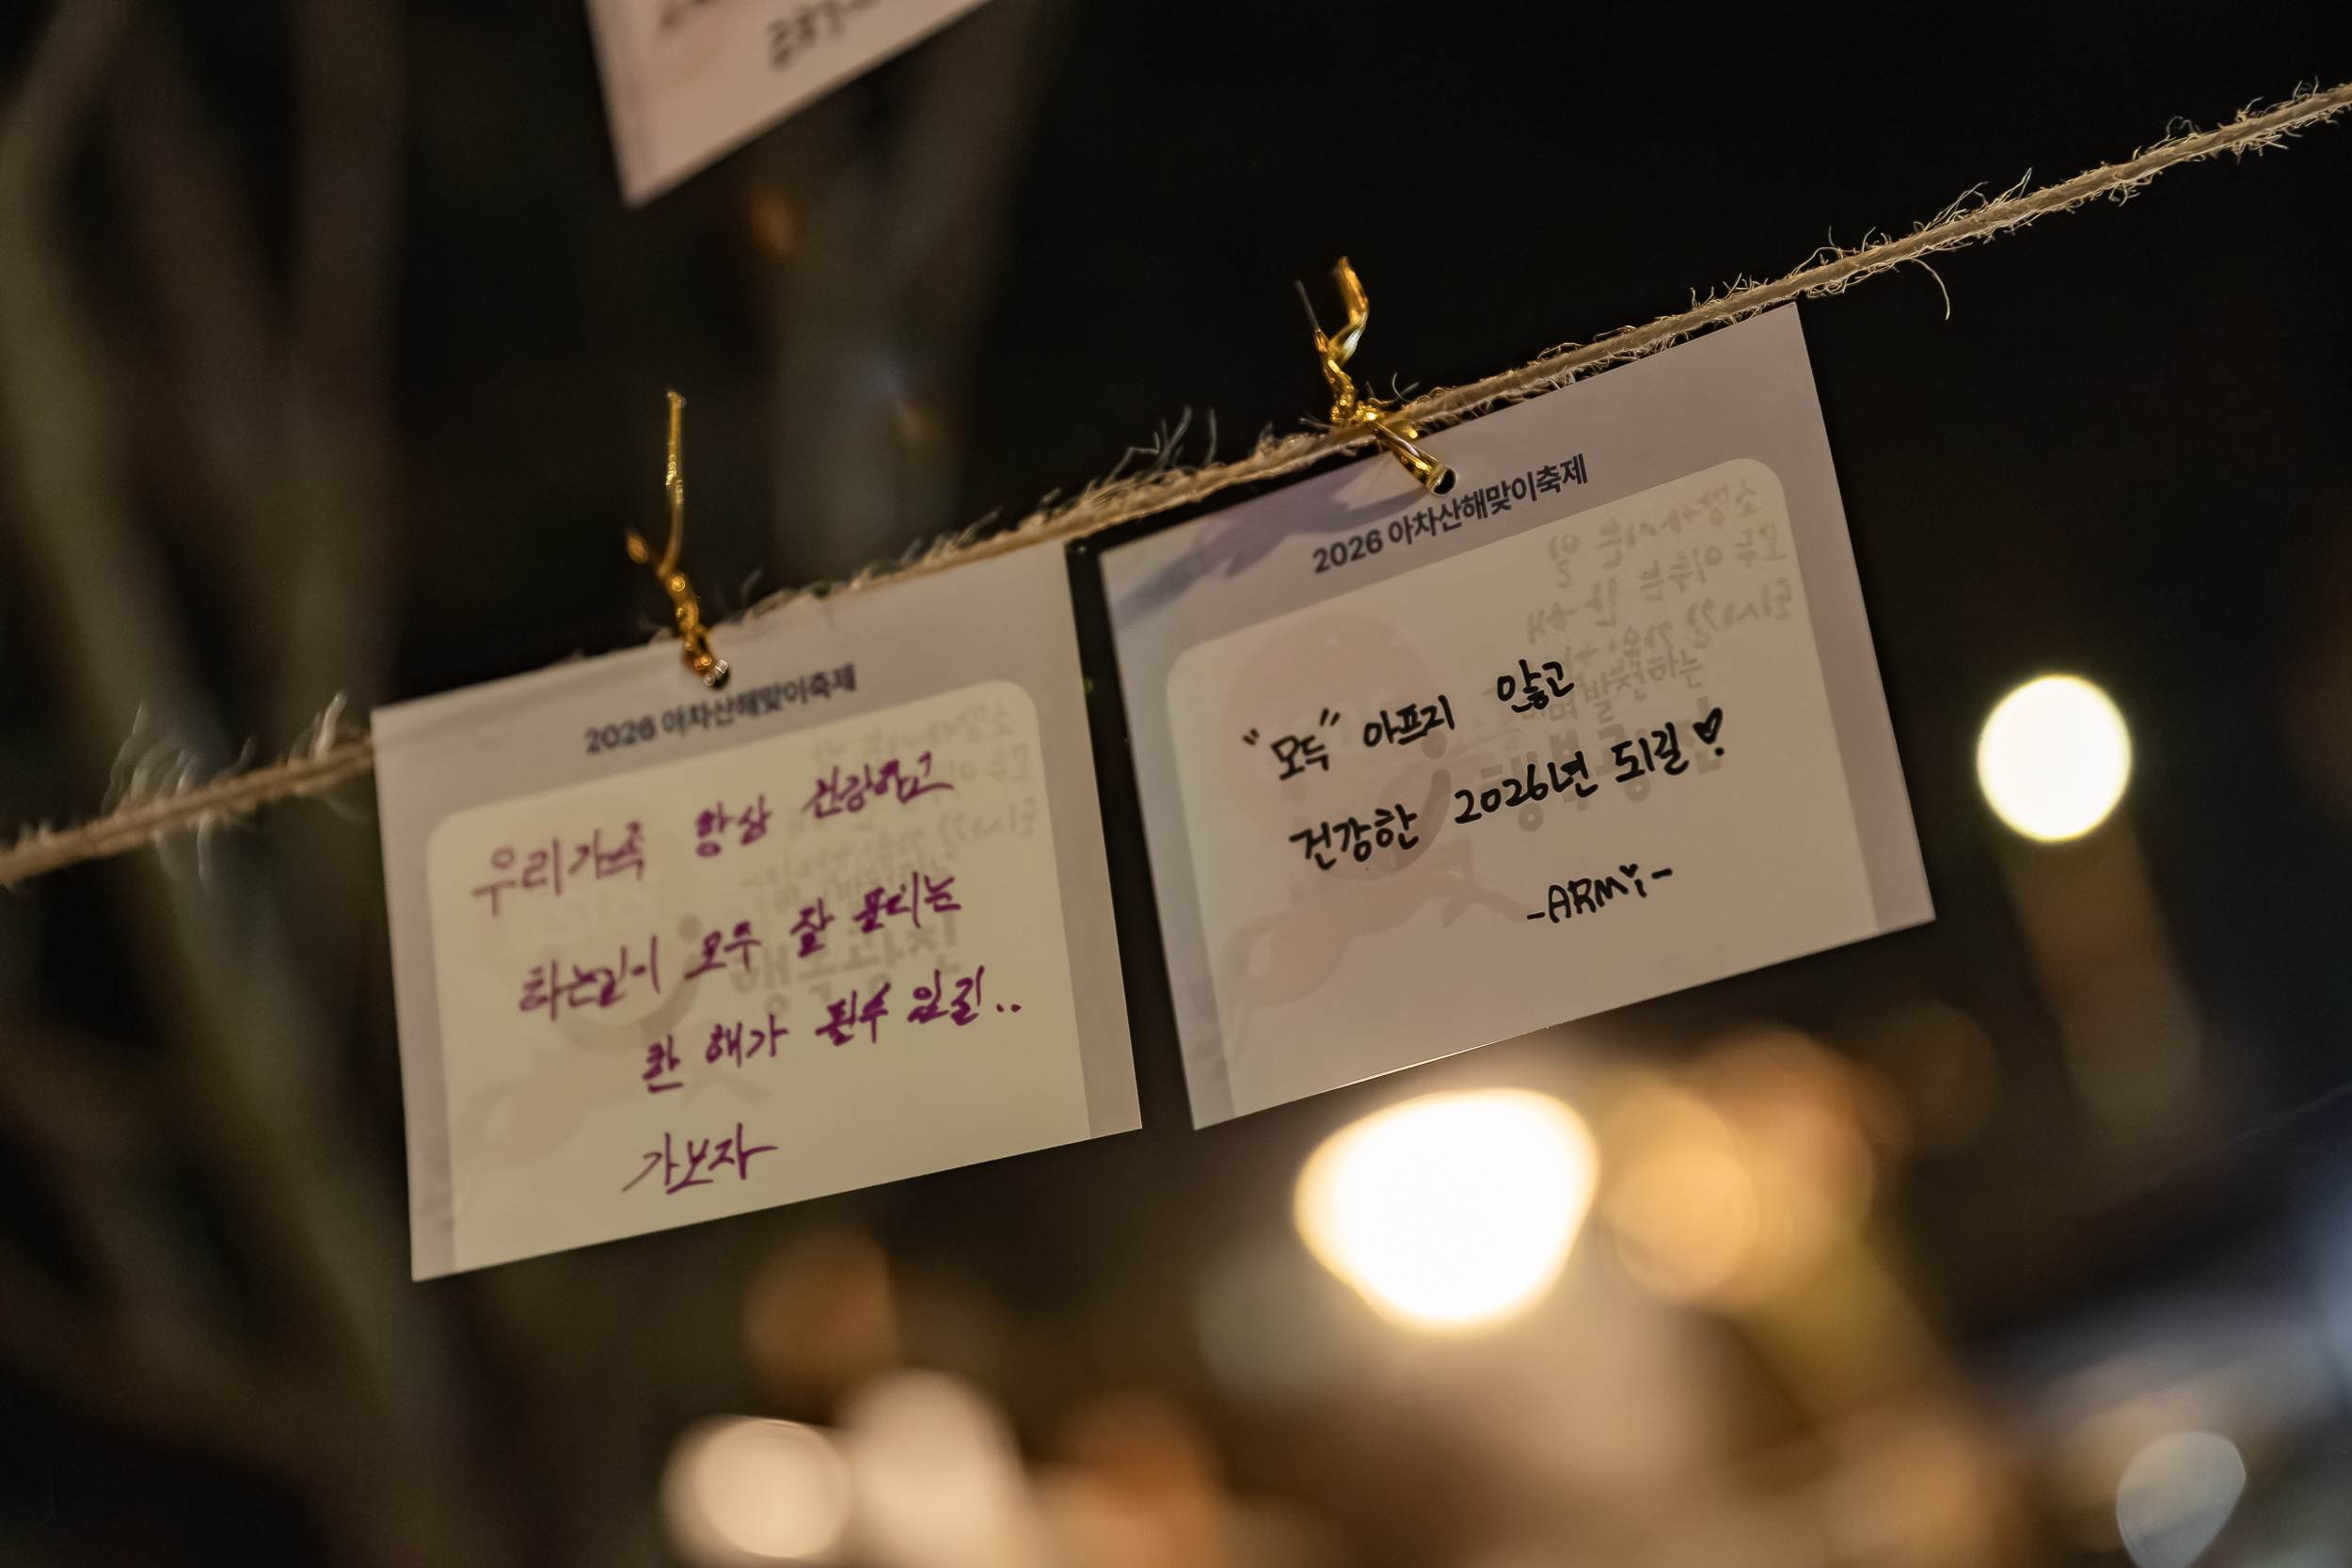 2026 아차산해맞이축제
우리가족 항상 건강하고
하는일이 모두 잘 풀리는
한 해가 될수 있길..
가보자
2026 아차산해맞이축제
"모두" 아프지 않고
건강한 2026년 되길♡
-ARMi-